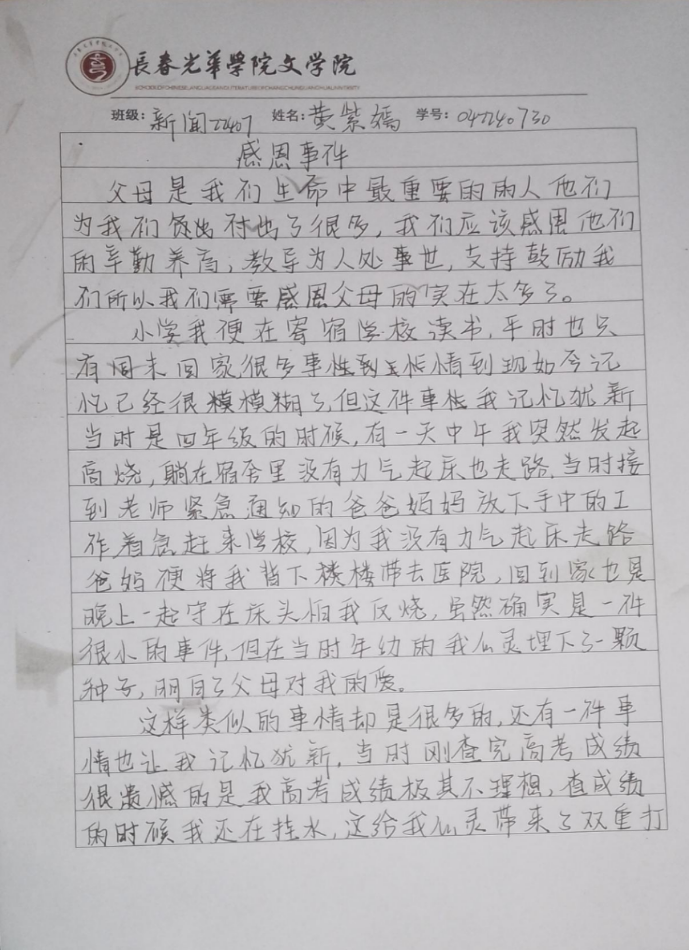 長春光華學院文学院
SCHOOL OF CHINESE LANGUAGE AND LITERATURE OF CHANGCHUN GUANGHUA UNIVERSITY
班级：新闻22407 姓名：黄紫嫣 学号：047240730
感恩事件
父母是我们生命中最重要的两人他们
为我们付出了很多，我们应该感恩他们
的辛勤养育，教导为人处事世，支持鼓励我
们所以我们需要感恩父母的实在太多了。
小学我便在寄宿学校读书，平时也只
有周末回家很多事情到现如今记
忆已经很模模糊了，但这件事情我记忆犹新
当时是四年级的时候，有一天中午我突然发起
高烧，躺在宿舍里没有力气起床也走路，当时接
到老师紧急通知的爸爸妈妈放下手中的工
作着急赶来学校，因为我没有力气起床走路
爸妈便将我背下楼楼带去医院，回到家也是
晚上一起守在床头怕我反烧，虽然确实是一件
很小的事件，但在当时年幼的我心灵埋下了一颗
种子，明白了父母对我的爱。
这样类似的事情却是很多的，还有一件事
情也让我记忆犹新，当时刚查完高考成绩
很遗憾的是我高考成绩极其不理想，查成绩
的时候我还在挂水，这给我心灵带来了双重打